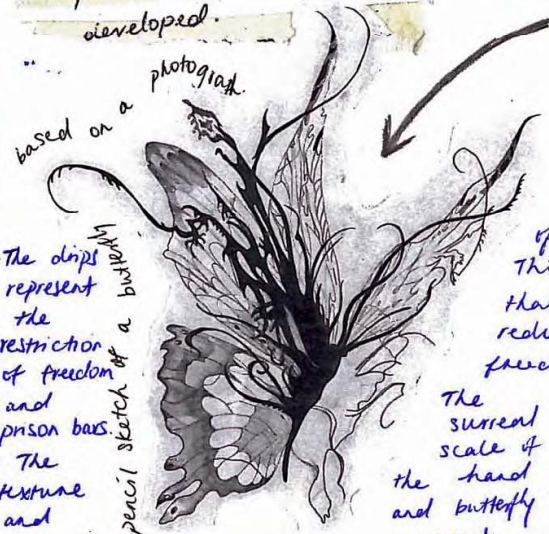 developed.
based on a photograph.
pencil sketch of a butterfly
The drips
represent
the
restriction
of freedom
and
prison bars.
The
texture
and
of
The
surreal
scale of
the hand
and butterfly